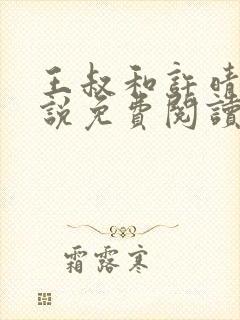 王叔和許晴
說免費閱讀
霜露寒